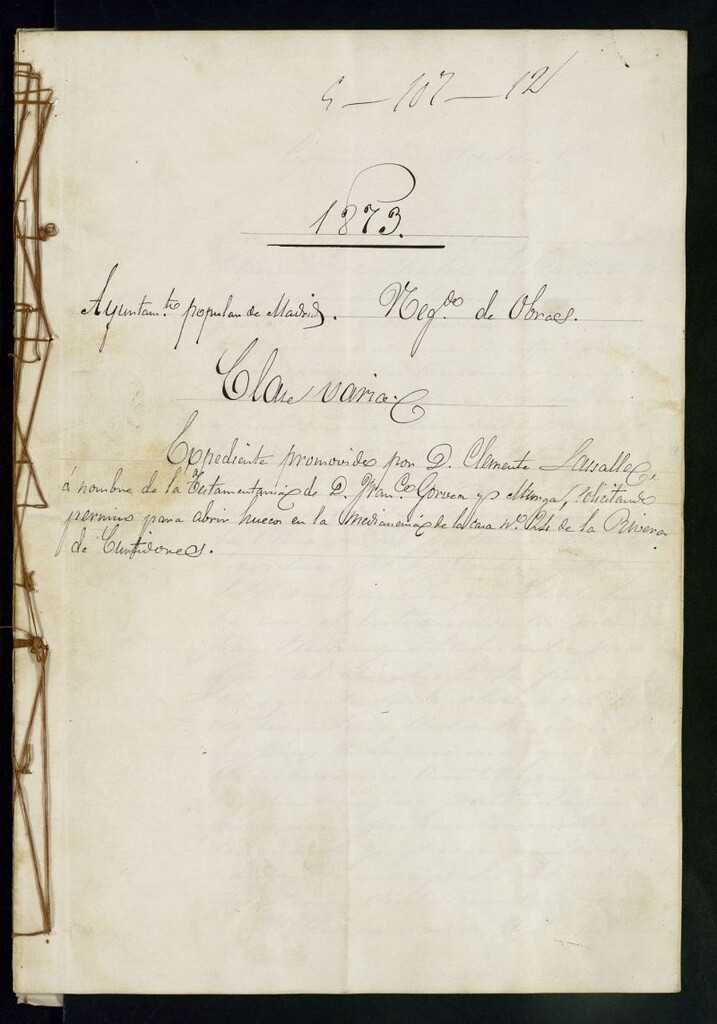 5-107-12
1873.
Ayuntam.to popular de Madrid. Neg.do de Obras.
Clase varias
Expediente promovido por D. Clemente Lassalle,
á nombre de la Testamentaria de D. Fran.co y solicitando
permiso para abrir huecos en la medianeria de la casa nº de la Rivera
de Curtidores.